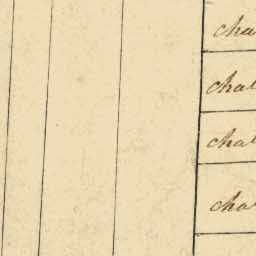 cha
chal
chal
cha